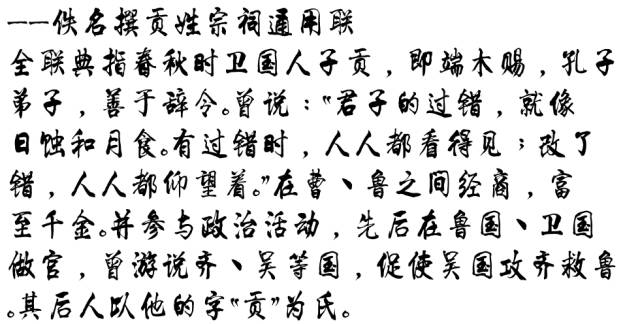 ——佚名撰贡姓宗祠通用联
全联典指春秋时卫国人子贡，即端木赐，孔子
弟子，善于辞令。曾说：“君子的过错，就像
日蚀和月食。有过错时，人人都看得见；改了
错，人人都仰望着。”在曹、鲁之间经商，富
至千金。并参与政治活动，先后在鲁国、卫国
做官，曾游说齐、吴等国，促使吴国攻齐救鲁
。其后人以他的字“贡”为氏。